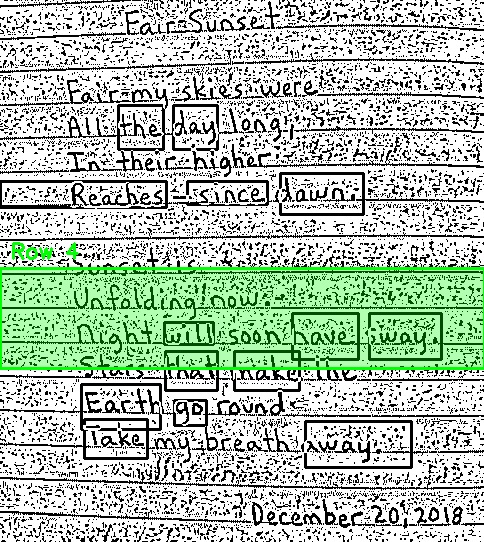 Fair Sunset
Fair my skies were
All the day long,
In their higher
Reaches - since dawn.
Row 4
Sunset is
Unfolding now.
Night will soon have sway.
Stars that make the
Earth go round
Take my breath away.
December 20, 2018